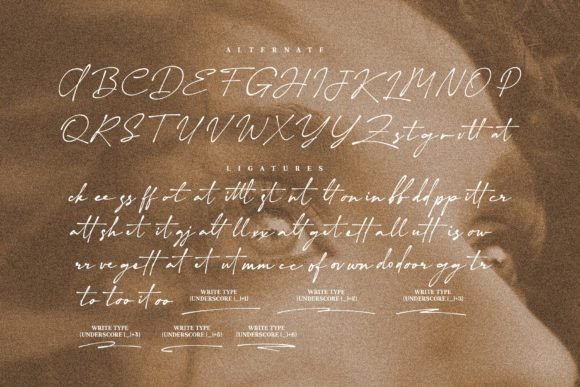 ALTERNATE
ABCDEFGHIJKLMNOP
QRSTUVWXYZ st g r itt at
LIGATURES
ck ee gs ff ot at st nt lt on in bb dd pp itt er
att sh et it gj alt ll xx alt get ett all utt is ow
rr ve gett at et ut mm cc of ov wn do door gg tr
to too it oo
WRITE TYPE WRITE TYPE WRITE TYPE
(UNDERSCORE (_)+1) (UNDERSCORE (_)+2) (UNDERSCORE (_)+3)
WRITE TYPE WRITE TYPE WRITE TYPE
(UNDERSCORE (_)+5) (UNDERSCORE (_)+6)